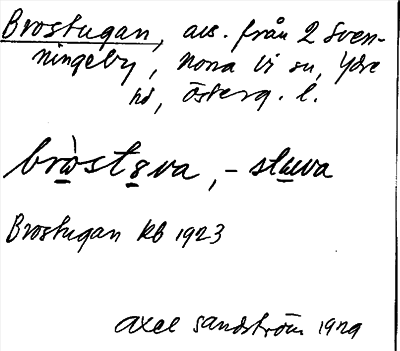 Brostugan, avs. från 2 Sven-
ningeby, Norra Vi sn, Ydre
hd, Österg. l.
bròstɞva, – stɯva
Brostugan kb 1923
Axel Sandström 1929